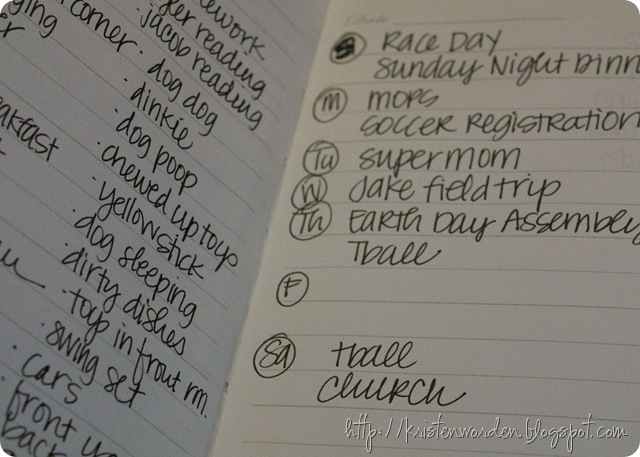 jacob reading
corner
dog dog
dinkie
dog poop
chewed up toyp
yellow stick
dog sleeping
dirty dishes
toyp in front rm.
swing set
cars
front
back
Date
S Race Day
Sunday Night Dinn
M MOPS
Soccer Registration
Tu Supermom
W Jake field trip
Th Earth Day Assembly
Tball
F
Sa Tball
Church
http://kristenworden.blogspot.com